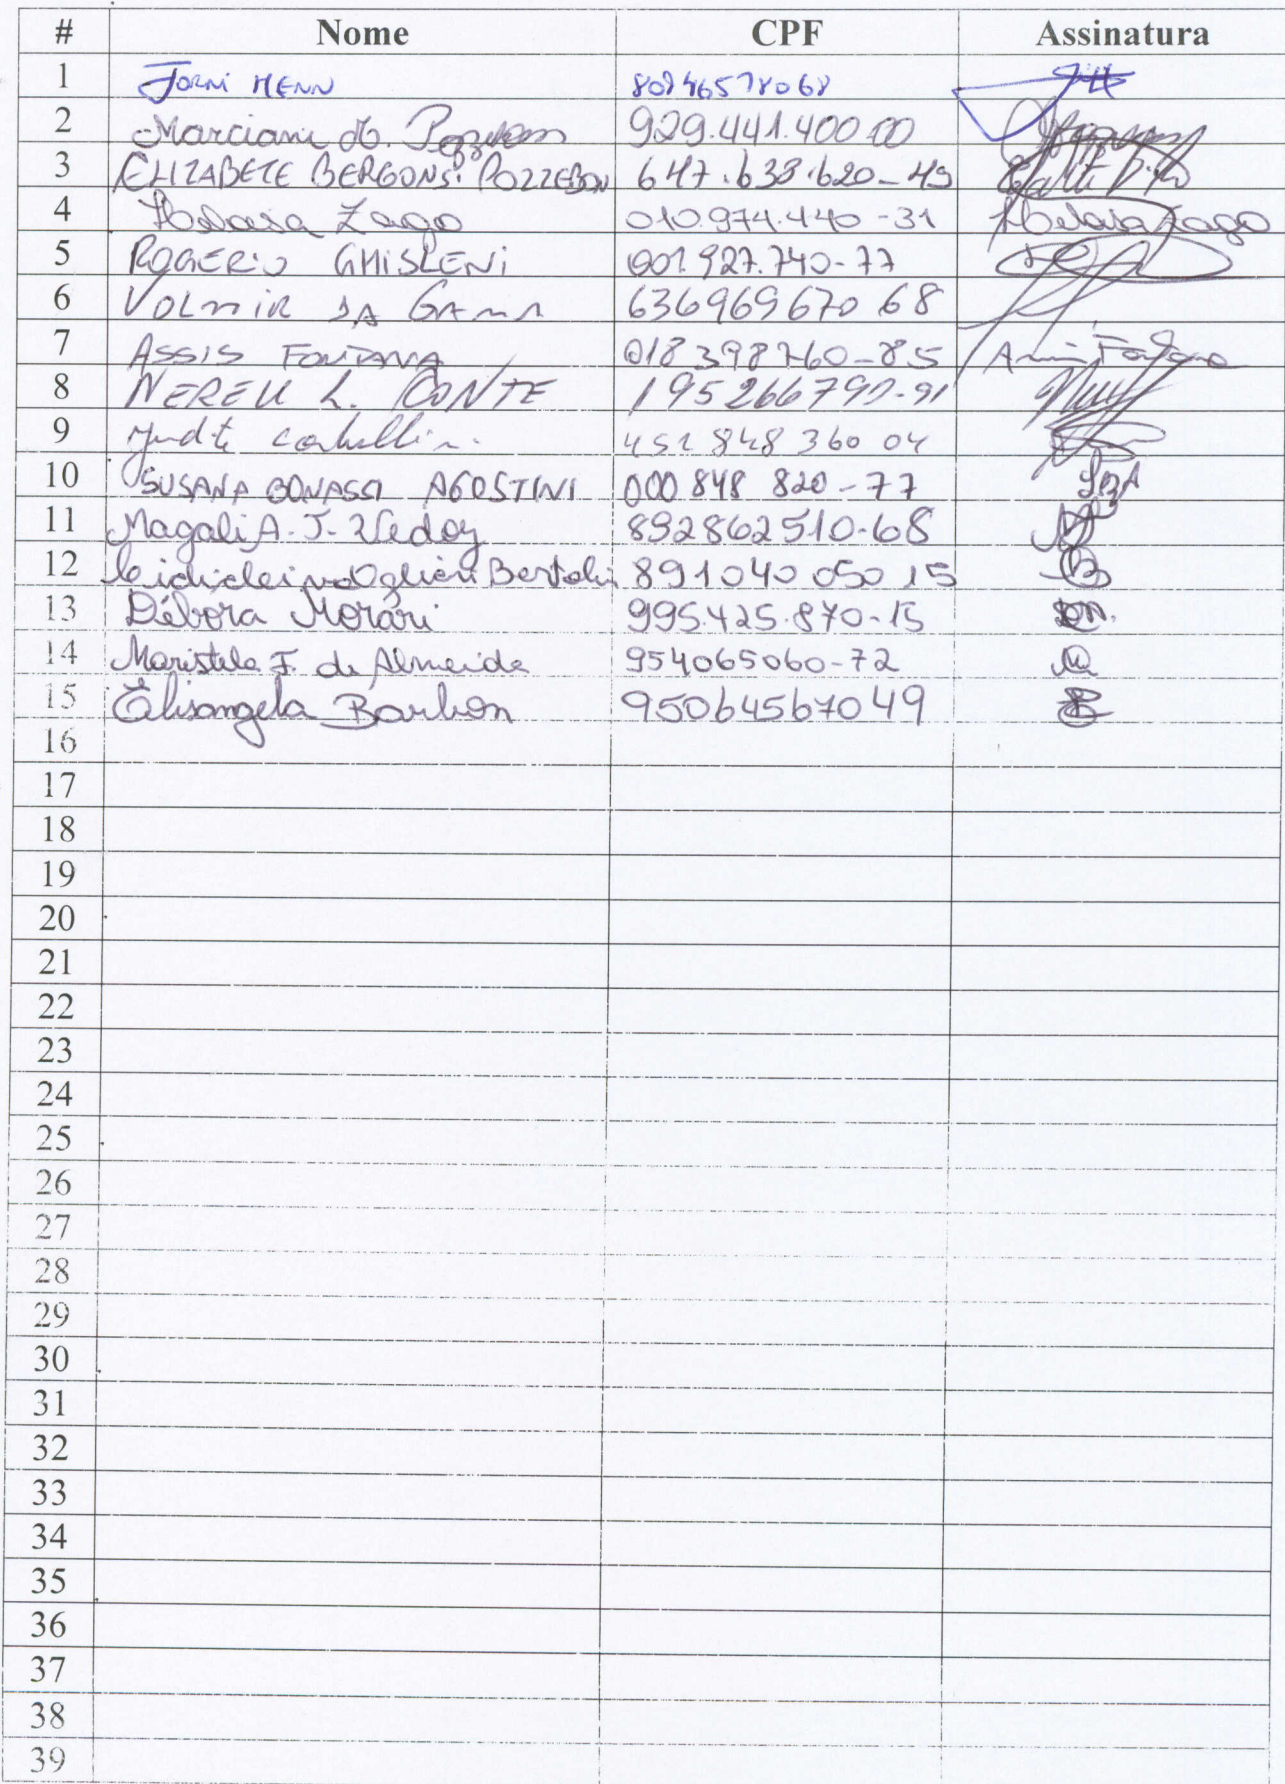 # Nome CPF Assinatura
1 Jorni Henn
2 Marciani 929.441.400 00
3 ELIZABETE BERGONSi POZZEBON 647.633.620-49
4 Heloisa Zago 010.974.440-31 Heloisa Zago
5 ROGERIO GHISLENI 001.927.740-77
6 VOLMIR DA GAMA 636969670 68
7 ASSIS FONTANA 018 398 760-85 Assis Fontana
8 NEREU L. CONTE 195266790-91
9 452 848 360 04
10 SUSANA BONASSI AGOSTINI 000 848 820-77 SBA
11 Magali A. J. Vedoy 892862510-68
12 891040 050 15
13 Débora Morari 995.425.870-15 DM.
14 Maristela F. de Almeida 954065060-72
15 Elisangela Barbon 95064567049
16
17
18
19
20
21
22
23
24
25
26
27
28
29
30
31
32
33
34
35
36
37
38
39